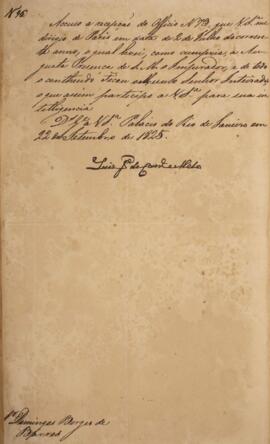 N. 46.
Accuso a recepção do Officio N. 79, que V. S.ª me
dirigio de Paris em data de 2 de Julho do corren-
te anno, o qual levei, como cumpria, á Au-
gusta Presença de S. M. o Imperador, e de todo
o contheudo ficou o mesmo Senhor Inteirado,
o que assim participo a V. S.ª para sua in-
telligencia.
D.s G.e a V. S.ª Palacio do Rio de Janeiro em
22 de Setembro de 1825.
Luiz J. de Carv.º e Mello
S.r Domingos Borges de
Barros